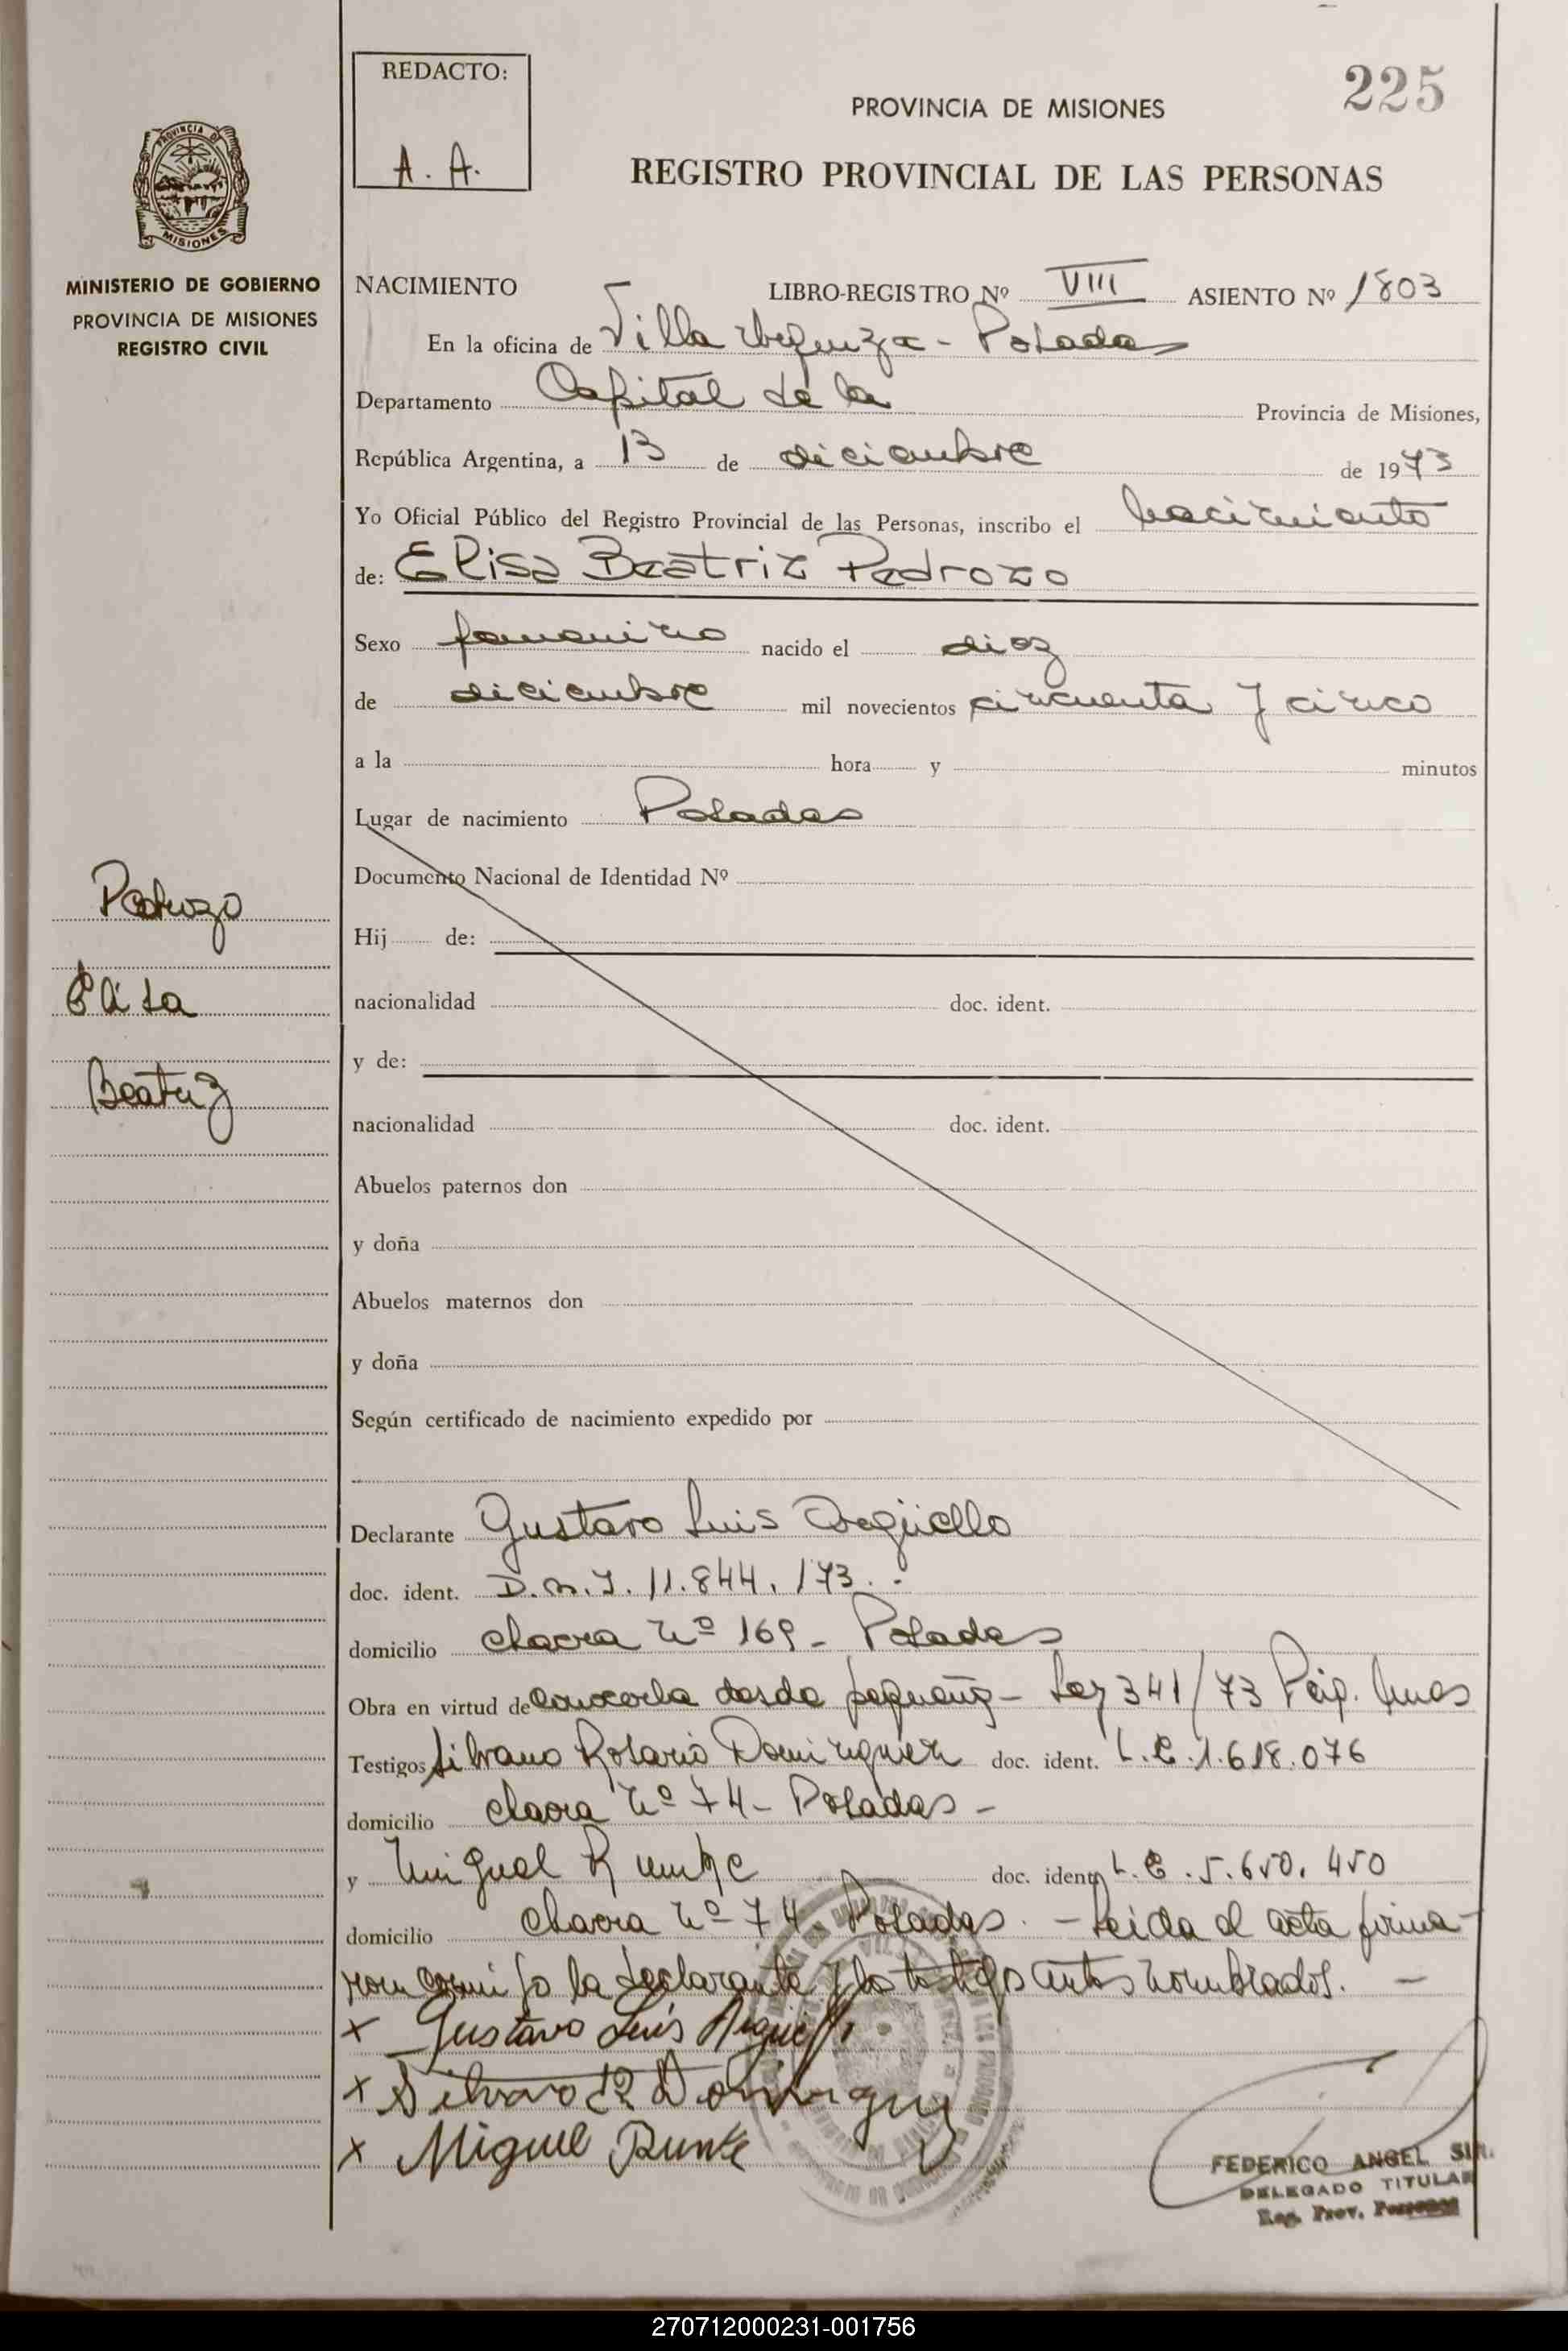 225
REDACTO:
A. A.
PROVINCIA DE MISIONES
REGISTRO PROVINCIAL DE LAS PERSONAS
PROVINCIA DE
MISIONES
MINISTERIO DE GOBIERNO
PROVINCIA DE MISIONES
REGISTRO CIVIL
NACIMIENTO LIBRO-REGISTRO Nº VIII ASIENTO Nº 1803
En la oficina de Villa Urquiza - Posadas
Departamento Capital de la Provincia de Misiones,
República Argentina, a 13 de diciembre de 1973
Yo Oficial Público del Registro Provincial de las Personas, inscribo el nacimiento
de: Elisa Beatriz Pedrozo
Sexo femenino nacido el diez
de diciembre mil novecientos cincuenta y cinco
a la hora y minutos
Lugar de nacimiento Posadas
Documento Nacional de Identidad Nº
Hij de:
nacionalidad doc. ident.
y de:
nacionalidad doc. ident.
Abuelos paternos don
y doña
Abuelos maternos don
y doña
Según certificado de nacimiento expedido por
Pedrozo
Elisa
Beatriz
Declarante Gustavo Luis Argüello
doc. ident. D.N.I. 11.844.173.-
domicilio chacra Nº 169 - Posadas
Obra en virtud de conocerla desde pequeña - Ley 341/73
Testigos Silvano Rosario Dominguez doc. ident. L.E. 1.618.076
domicilio chacra Nº 74 - Posadas -
y Miguel Runke doc. ident. L.E. 5.650.450
domicilio chacra Nº 74. Posadas. - Leida el acta firma-
ron conmigo la declarante y los testigos antes nombrados. -
x Gustavo Luis Argüello
x Silvano R Dominguez
x Miguel Runke
FEDERICO ANGEL
DELEGADO TITULAR
Reg. Prov. Personas
270712000231-001756